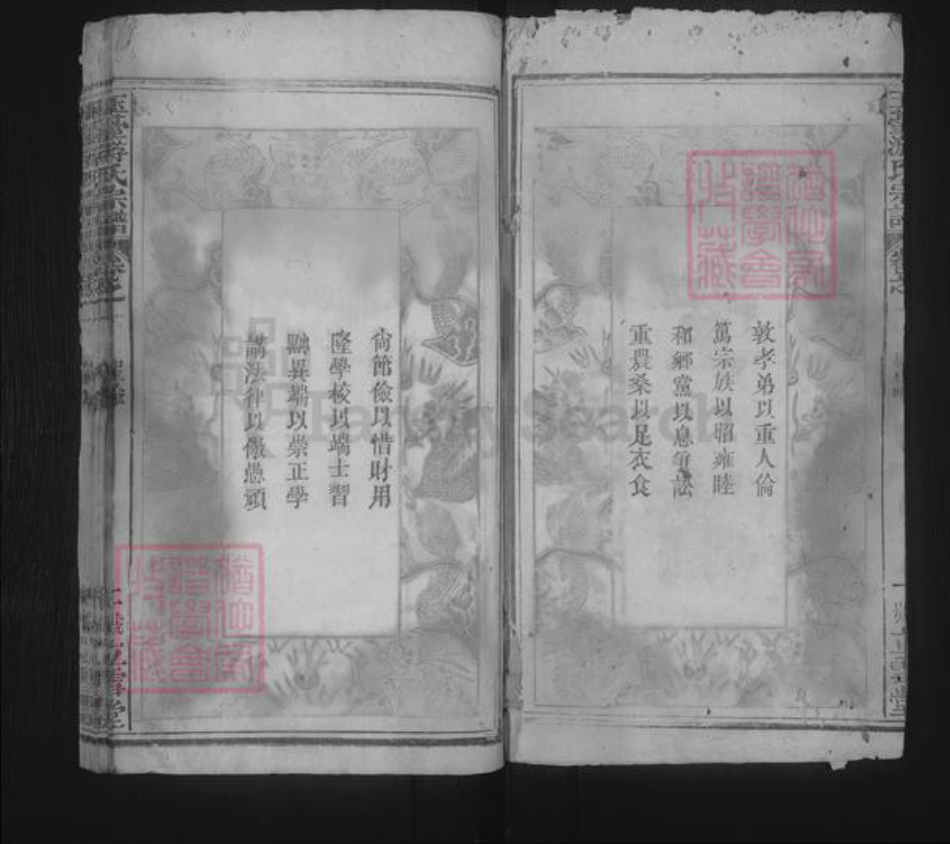 敦孝弟以重人倫
篤宗族以昭雍睦
和鄉黨以息爭訟
重農桑以足衣食
尚節儉以惜財用
隆學校以端士習
黜異端以崇正學
講法律以儆愚頑
游氏宗譜
卷之一
立雪堂
譜學會
收藏
FamilySearch